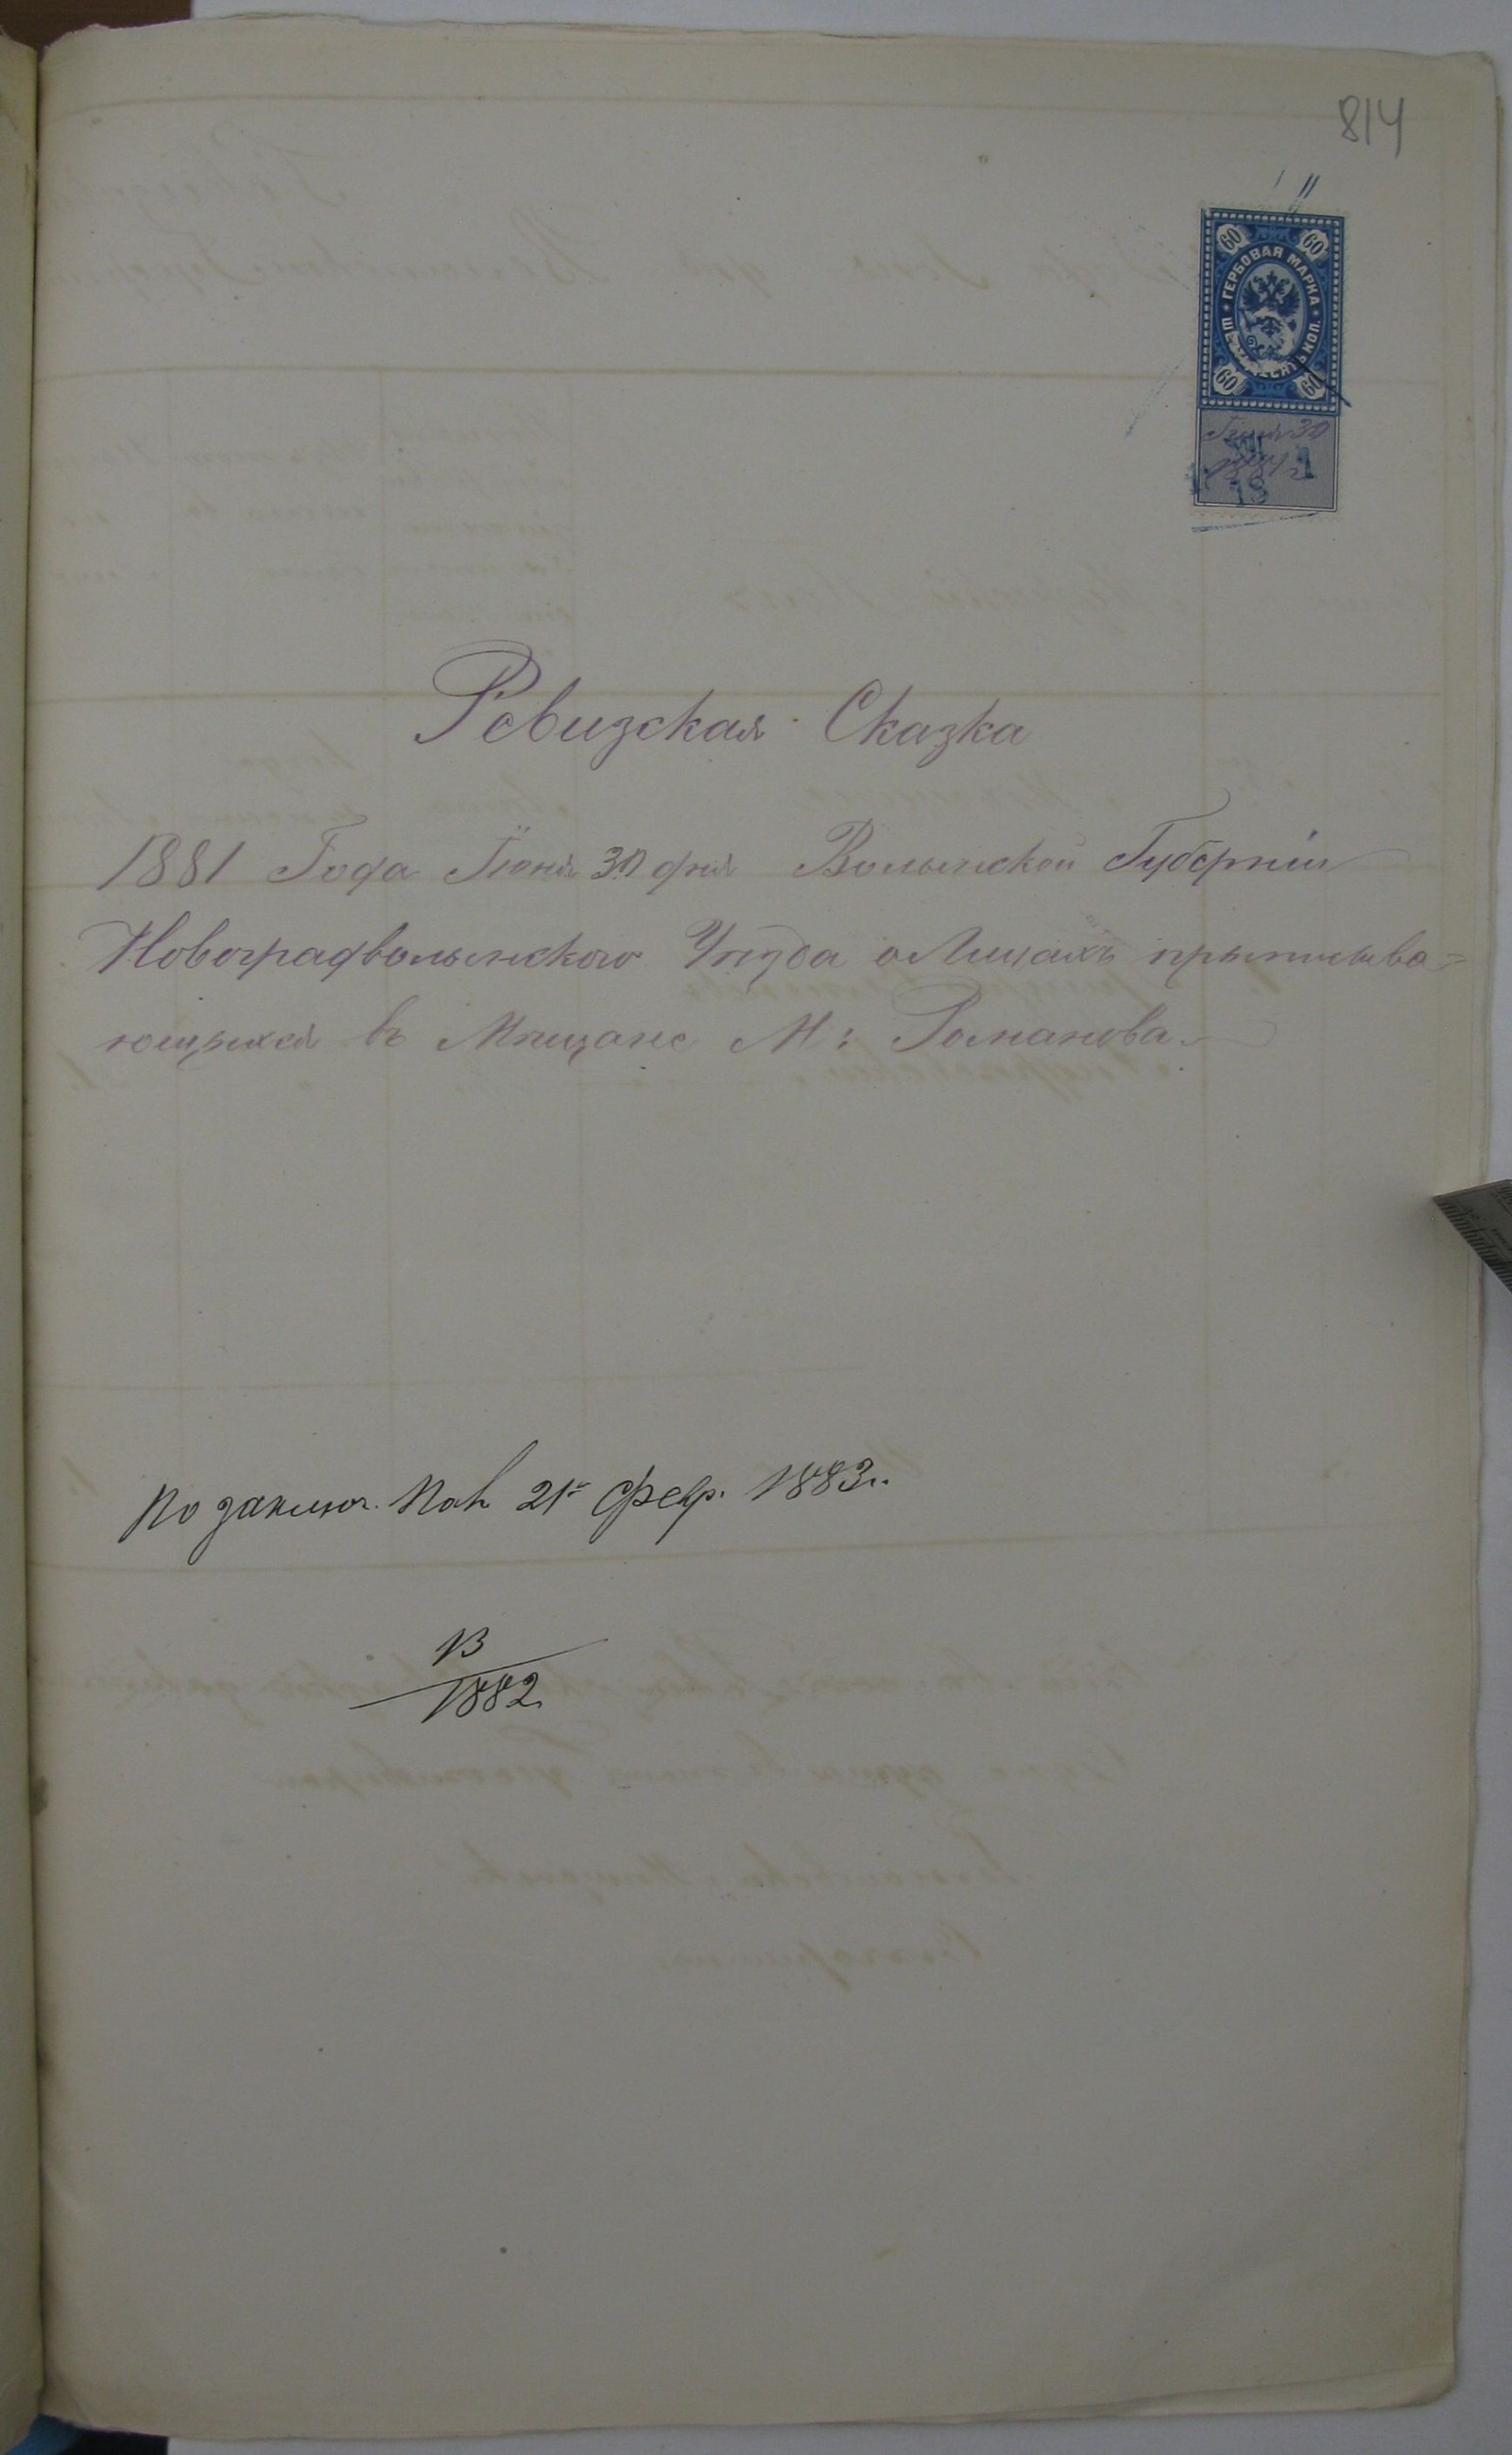 814
60 60
ГЕРБОВАЯ МАРКА
ШЕСТЬДЕСЯТЪ КОП.
60 60
Іюня 30
1881 г
Ревизская Сказка
1881 Года Іюня 30 дня Волынской Губерніи
Новоградволынского Уѣзда о Лицахъ прыписыва=
ющыхся въ Мѣщане М: Романова.
По заключ. 21 февр. 1883 г.
13
1882